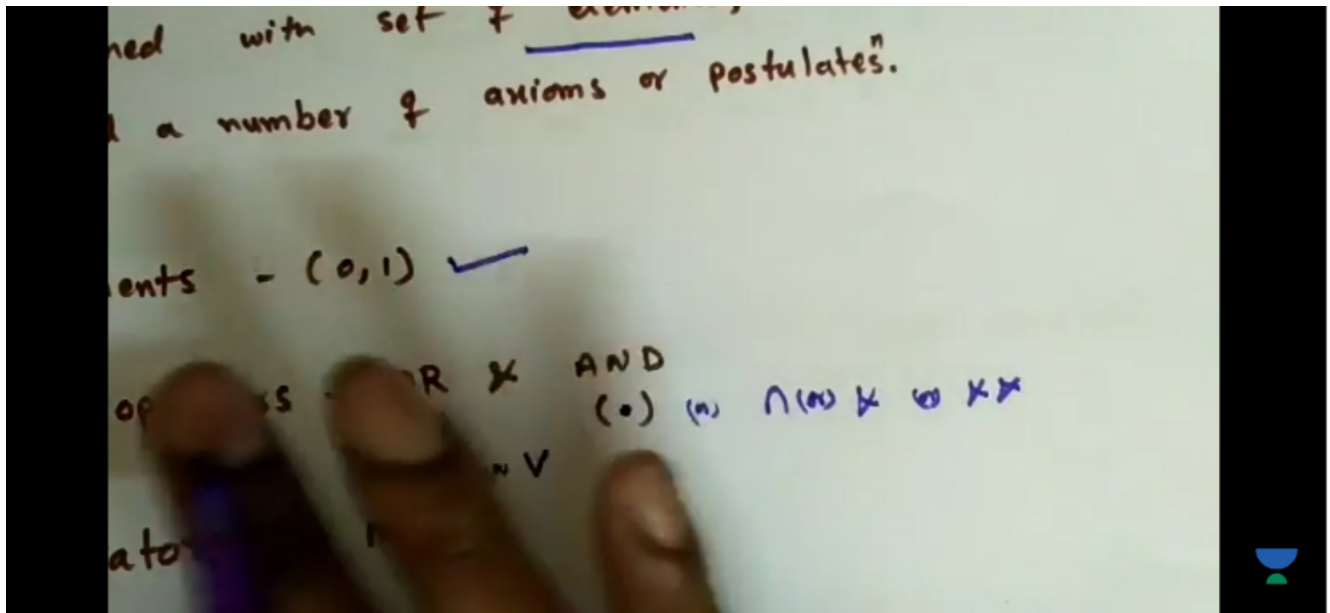 ned with set of
a number of axioms or postulates".
ents - (0,1)
op s R & AND
(•) (or) ∩ (or) & (or) &&
V
ato